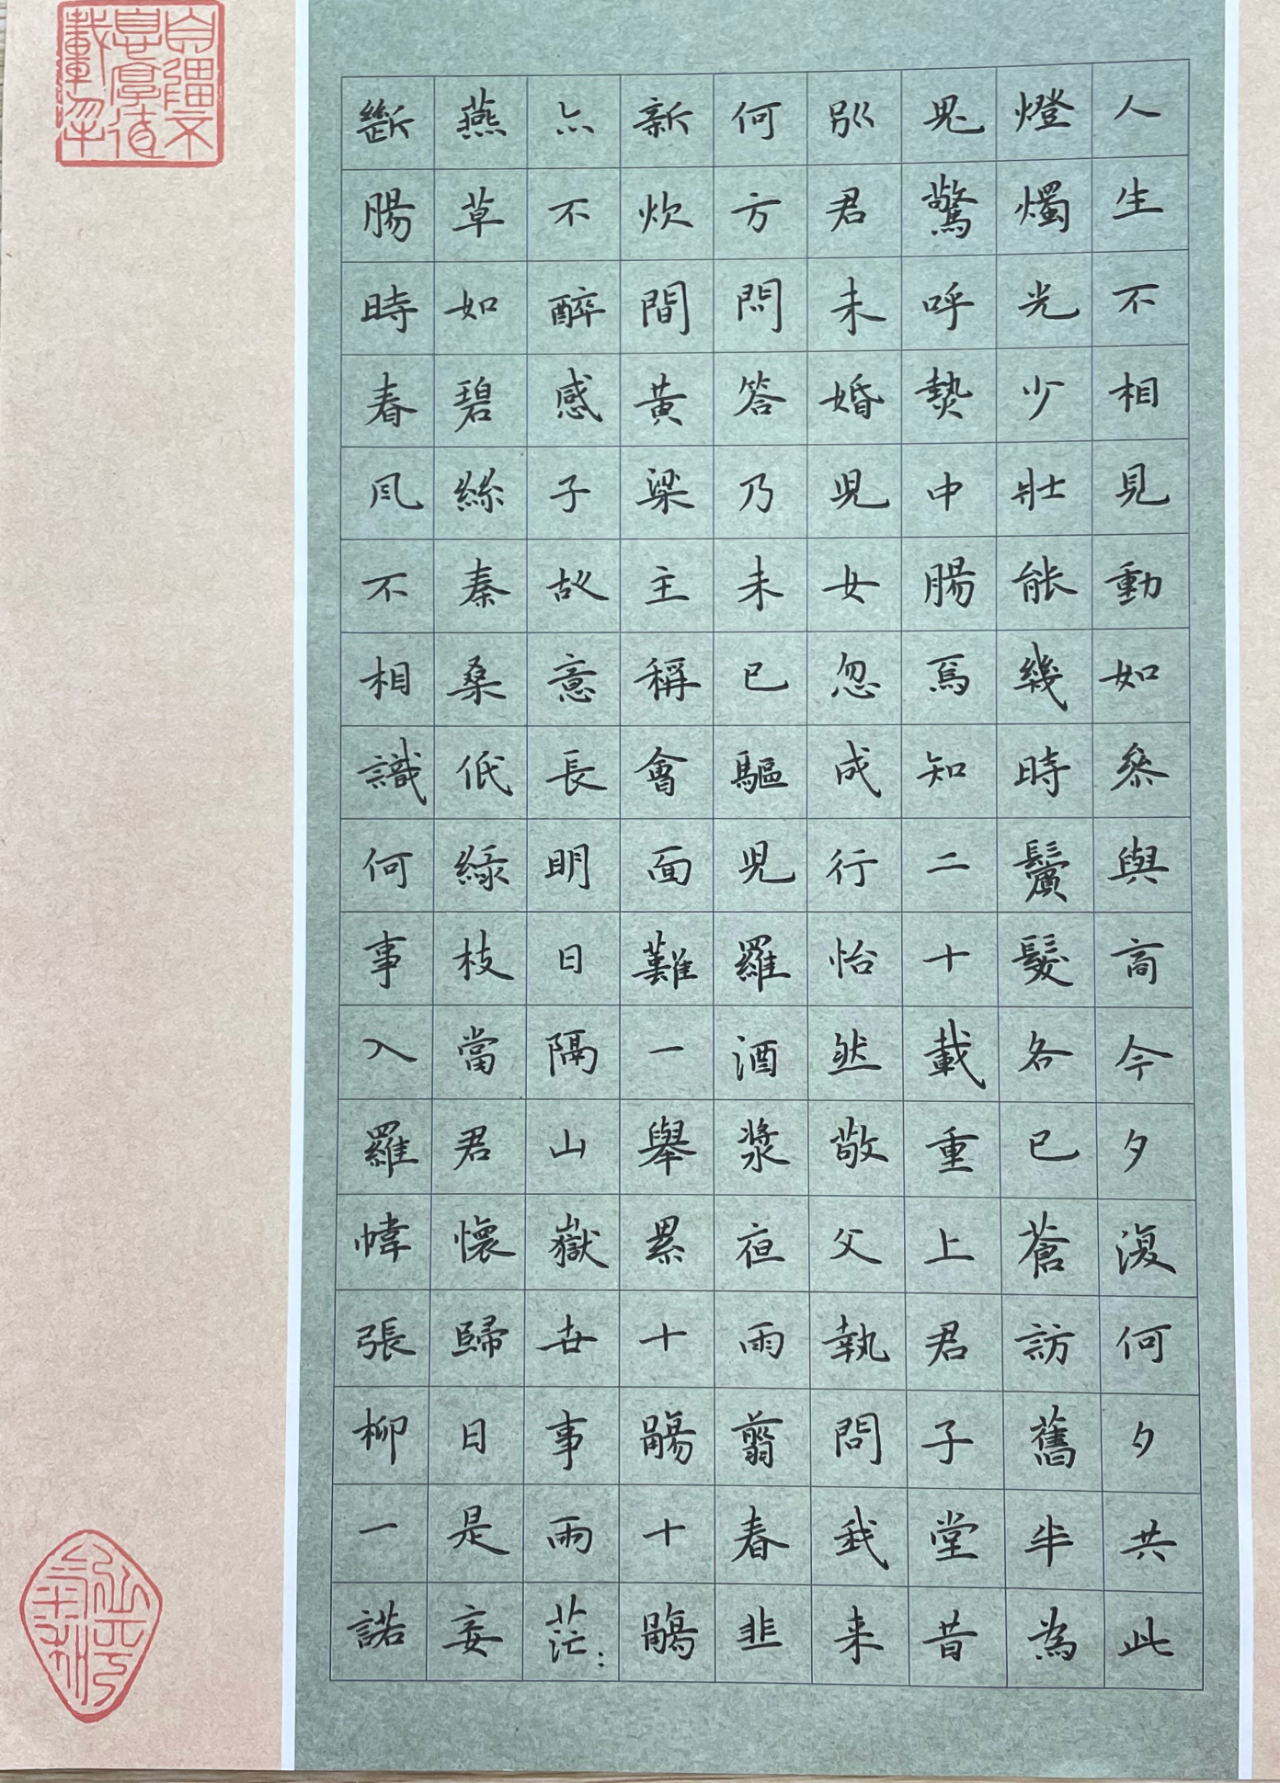 人生不相見動如參與商今夕復何夕共此
燈燭光少壯能幾時鬢髮各已蒼訪舊半為
鬼驚呼熱中腸焉知二十載重上君子堂昔
別君未婚兒女忽成行怡然敬父執問我来
何方問答乃未已驅兒羅酒漿夜雨翦春韭
新炊間黃粱主稱會面難一舉累十觴十觴
亦不醉感子故意長明日隔山嶽世事兩茫:
燕草如碧絲秦桑低綠枝當君懷歸日是妾
斷腸時春風不相識何事入羅幃張柳一諾
自彊不
息厚德
載物